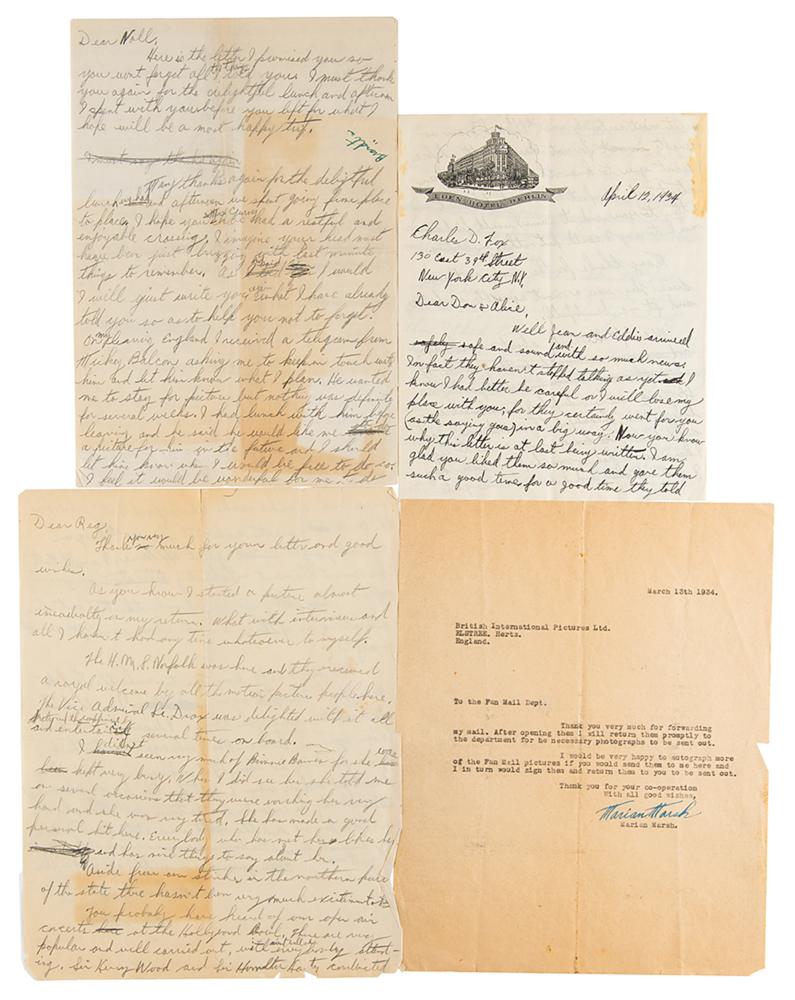 Dear Noll,
Here is the letter I promised you so
you wont forget all I told you. I must thank
you again for the delightful lunch and afternoon
I spent with you before you left for what I
hope will be a most happy trip.
Many thanks again for the delightful
lunch and afternoon we spent going from place
to place. I hope you had a restful and
enjoyable crossing. I imagine your head must
have been just buzzing with last minute
things to remember. As I said I would
I will just write you again what I have already
told you so as to help you not to forget.
On my leaving England I received a telegram from
Mickey Balcon asking me to keep in touch with
him and let him know what I plan. He wanted
me to stay for pictures but nothing was definite
for several weeks. I had lunch with him before
leaving and he said he would like me
a picture for him in the future and I should
let him know when I would be free to do so.
I feel it would be wonderful for me to do
EDEN HOTEL BERLIN
April 12, 1934
Charles D. Fox
130 East 39th Street
New York City N.Y.
Dear Don & Alice,
Well Jean and Eddie arrived
safely safe and sound and with so much news.
In fact they haven't stopped talking as yet and I
know I had better be careful or I will lose my
place with you, for they certainly went for you
(as the saying goes) in a big way. Now you know
why this letter is at last being written. I am
glad you liked them so much and gave them
such a good time for a good time they told
Dear Reg,
Thank you very much for your letter and good
wishes.
As you know I started a picture almost
immediately on my return. What with interviews and
all I haven't had any time whatsoever to myself.
The H.M.S. Norfolk was here and they received
a royal welcome by all the motion picture people here.
The Vice Admiral Le. Drax was delighted with it all
and entertained several times on board.
I didn't seen very much of Binnie Barnes for she
kept very busy. When I did see her she told me
on several occasions that they were working her very
hard and she was very tired. She has made a good
personal hit here. Everybody who has met her likes her
and has nice things to say about her.
Aside from our strike in the northern part
of the state there hasn't been very much excitement
You probably have heard of our open air
concerts here at the Hollywood Bowl. There are very
popular and well carried out, with everybody attend-
ing. Sir Henry Wood and Sir Hamilton Harty conducted
March 13th 1934.
British International Pictures Ltd.
ELSTREE. Herts.
England.
To the Fan Mail Dept.
Thank you very much for forwarding
my mail. After opening them I will return them promptly to
the department for he necessary photographs to be sent out.
I would be very happy to autograph more
of the Fan Mail pictures if you would send them to me here and
I in turn would sign them and return them to you to be sent out.
Thank you for your co-operation
With all good wishes,
Marian Marsh
Marian Marsh.